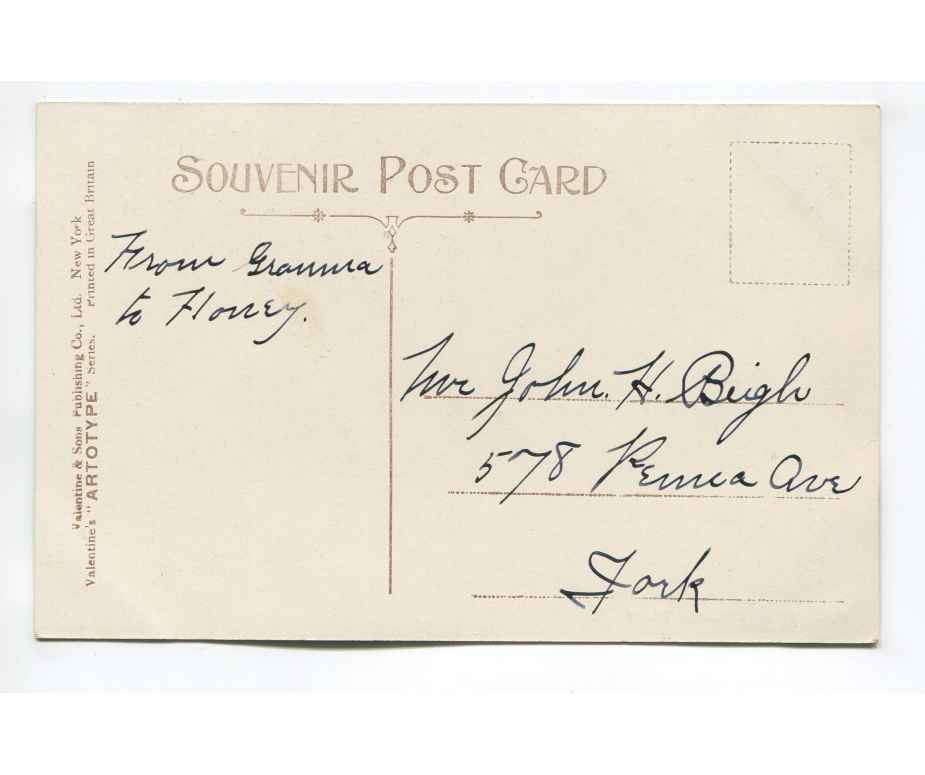 SOUVENIR POST CARD
Valentine & Sons Publishing Co., Ltd. New York
Valentine's "ARTOTYPE" Series. Printed in Great Britain
From Granma
to Honey.
Mr John. H. Beigh
578 Penna Ave
York